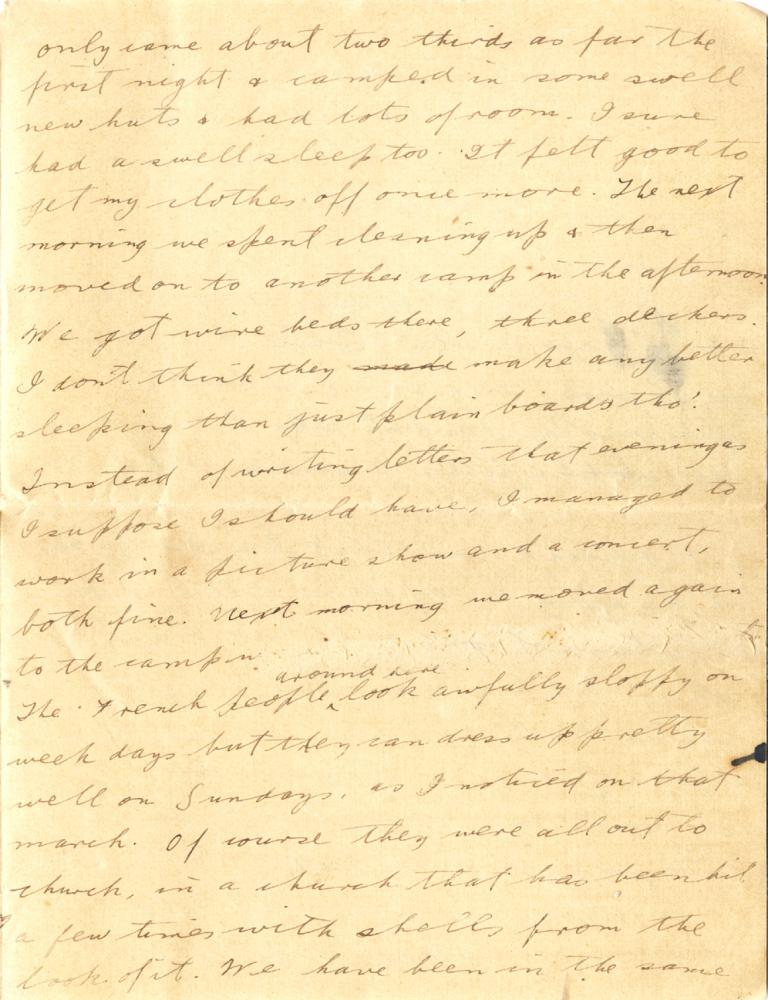 only came about two thirds as far the
first night & camped in some swell
new huts & had lots of room. I sure
had a swell sleep too. It felt good to
get my clothes off once more. The next
morning we spent cleaning up & then
moved on to another camp in the afternoon.
We got wire beds there, three deckers.
I don't think they made make any better
sleeping than just plain boards tho'.
Instead of writing letters that evening as
I suppose I should have, I managed to
work in a picture show and a concert,
both fine. Next morning we moved again
to the camp
around here
The French people look awfully sloppy on
week days but they can dress up pretty
well on Sundays, as I noticed on that
march. Of course they were all out to
church, in a church that has been hit
a few times with shells from the
look of it. We have been in the same